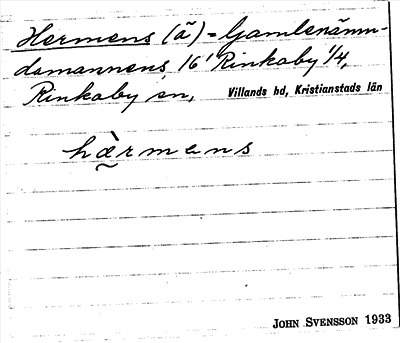 Hermens (ä) = Gamlenämn-
damannens, 16¹ Rinkaby 1/4,
Rinkaby sn, Villands hd, Kristianstads län
hæ̀rmens
JOHN SVENSSON 1933